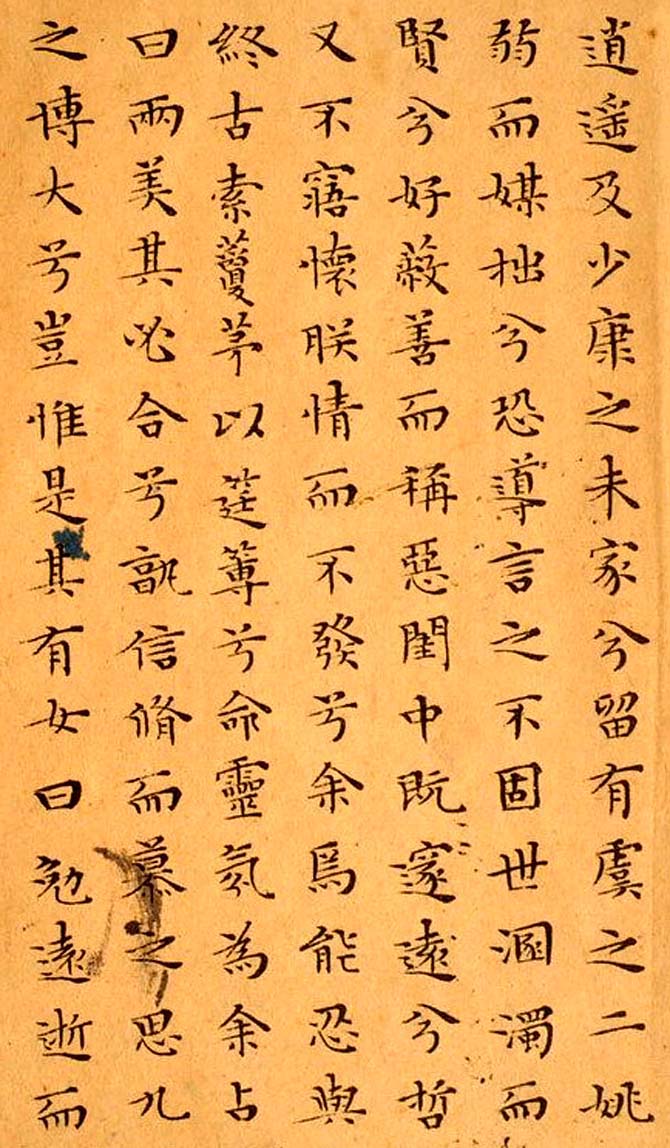 逍遥及少康之未家兮留有虞之二姚
弱而媒拙兮恐導言之不固世溷濁而
賢兮好蔽善而稱惡閨中既邃遠兮哲
又不寤懷朕情而不發兮余焉能忍與
終古索藑茅以筳篿兮命靈氛為余占
曰兩美其必合兮孰信脩而慕之思九
之博大兮豈惟是其有女曰勉遠逝而